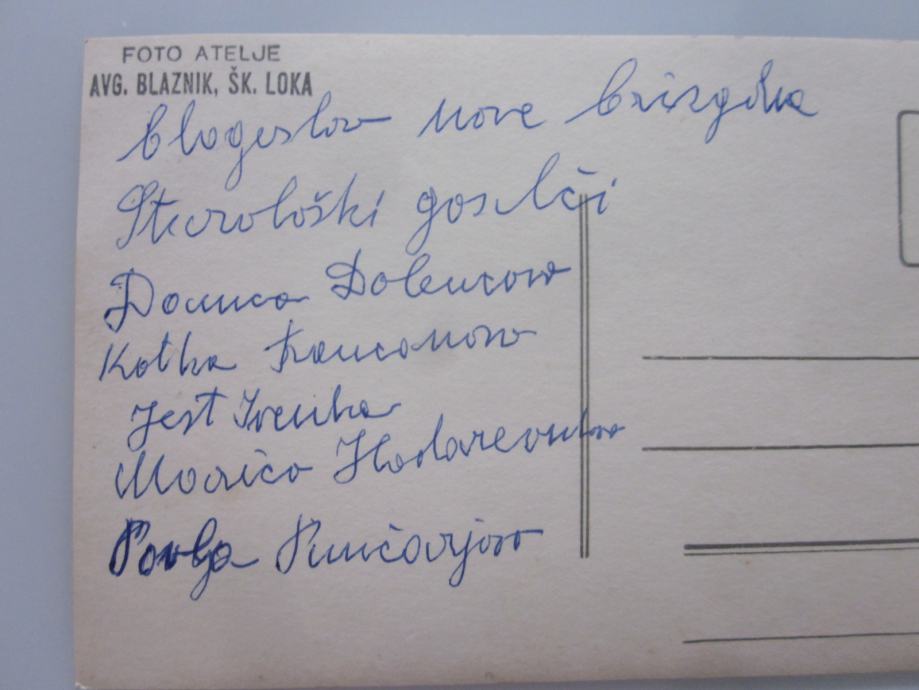 FOTO ATELJE
AVG. BLAZNIK, ŠK. LOKA
blagoslov nove brizgalne
Starološki gosilči
Domnca Dolencova
Kotka Francanova
Jest Ivenka
Marica
Pavla Punčarjova